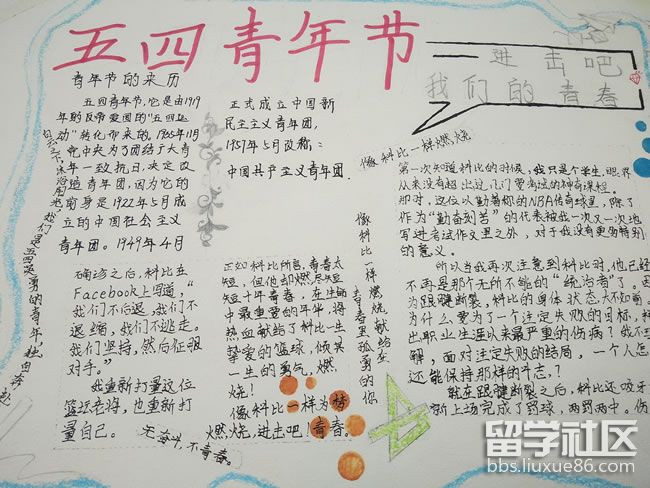 五四青年节
进击吧
我们的青春
青年节的来历
五四青年节,它是由1919
年的反帝爱国的"五四运
动"转化而来的,1935年11月
党中央为了团结广大青
年一致抗日,决定改
造青年团,因为它的
前身是1922年5月成
立的中国社会主义
青年团。1949年4月
正式成立中国新
民主主义青年团,
1957年5月改称:
中国共产主义青年团.
像科比一样燃烧
第一次知道科比的时候,我只是个学生,眼界
从来没有超出过几门要考试的神奇课程.
那时,这位以勤著称的NBA传奇球星,除了
作为"勤奋刻苦"的代表被我一次又一次地
写进考试作文里之外,对于我没有更多特别
的意义。
所以当我再次注意到科比时,他已经
不再是那个无所不能的"统治者"了。因
为跟腱断裂,科比的身体状态大不如前。
为什么要为了一个注定失败的目标,
出职业生涯以来最严重的伤病?我不
解,面对注定失败的结局,一个人怎
还能保持那样的斗志?
就在跟腱断裂之后,科比还咬牙
新上场完成了罚球,两罚两中。伤
确诊之后,科比在
Facebook上写道,"
我们不后退,我们不
退缩,我们不逃走。
我们坚持,然后征服
对手。"
我重新打量这位
篮运老将,也重新打
量自己。
无奋斗,不青春。
正如科比所言,青春太
短,但他却燃尽短短
短十年青春,在生命
中最重要的年华,将
热血献给了科比一生
挚爱的篮球,倾其
一生的勇气,燃
烧!
像科比一样为梦
燃烧,进击吧!青春。
像科比一样燃烧献给在
青春里孤勇的你
留学社区
bbs.liuxue86.com